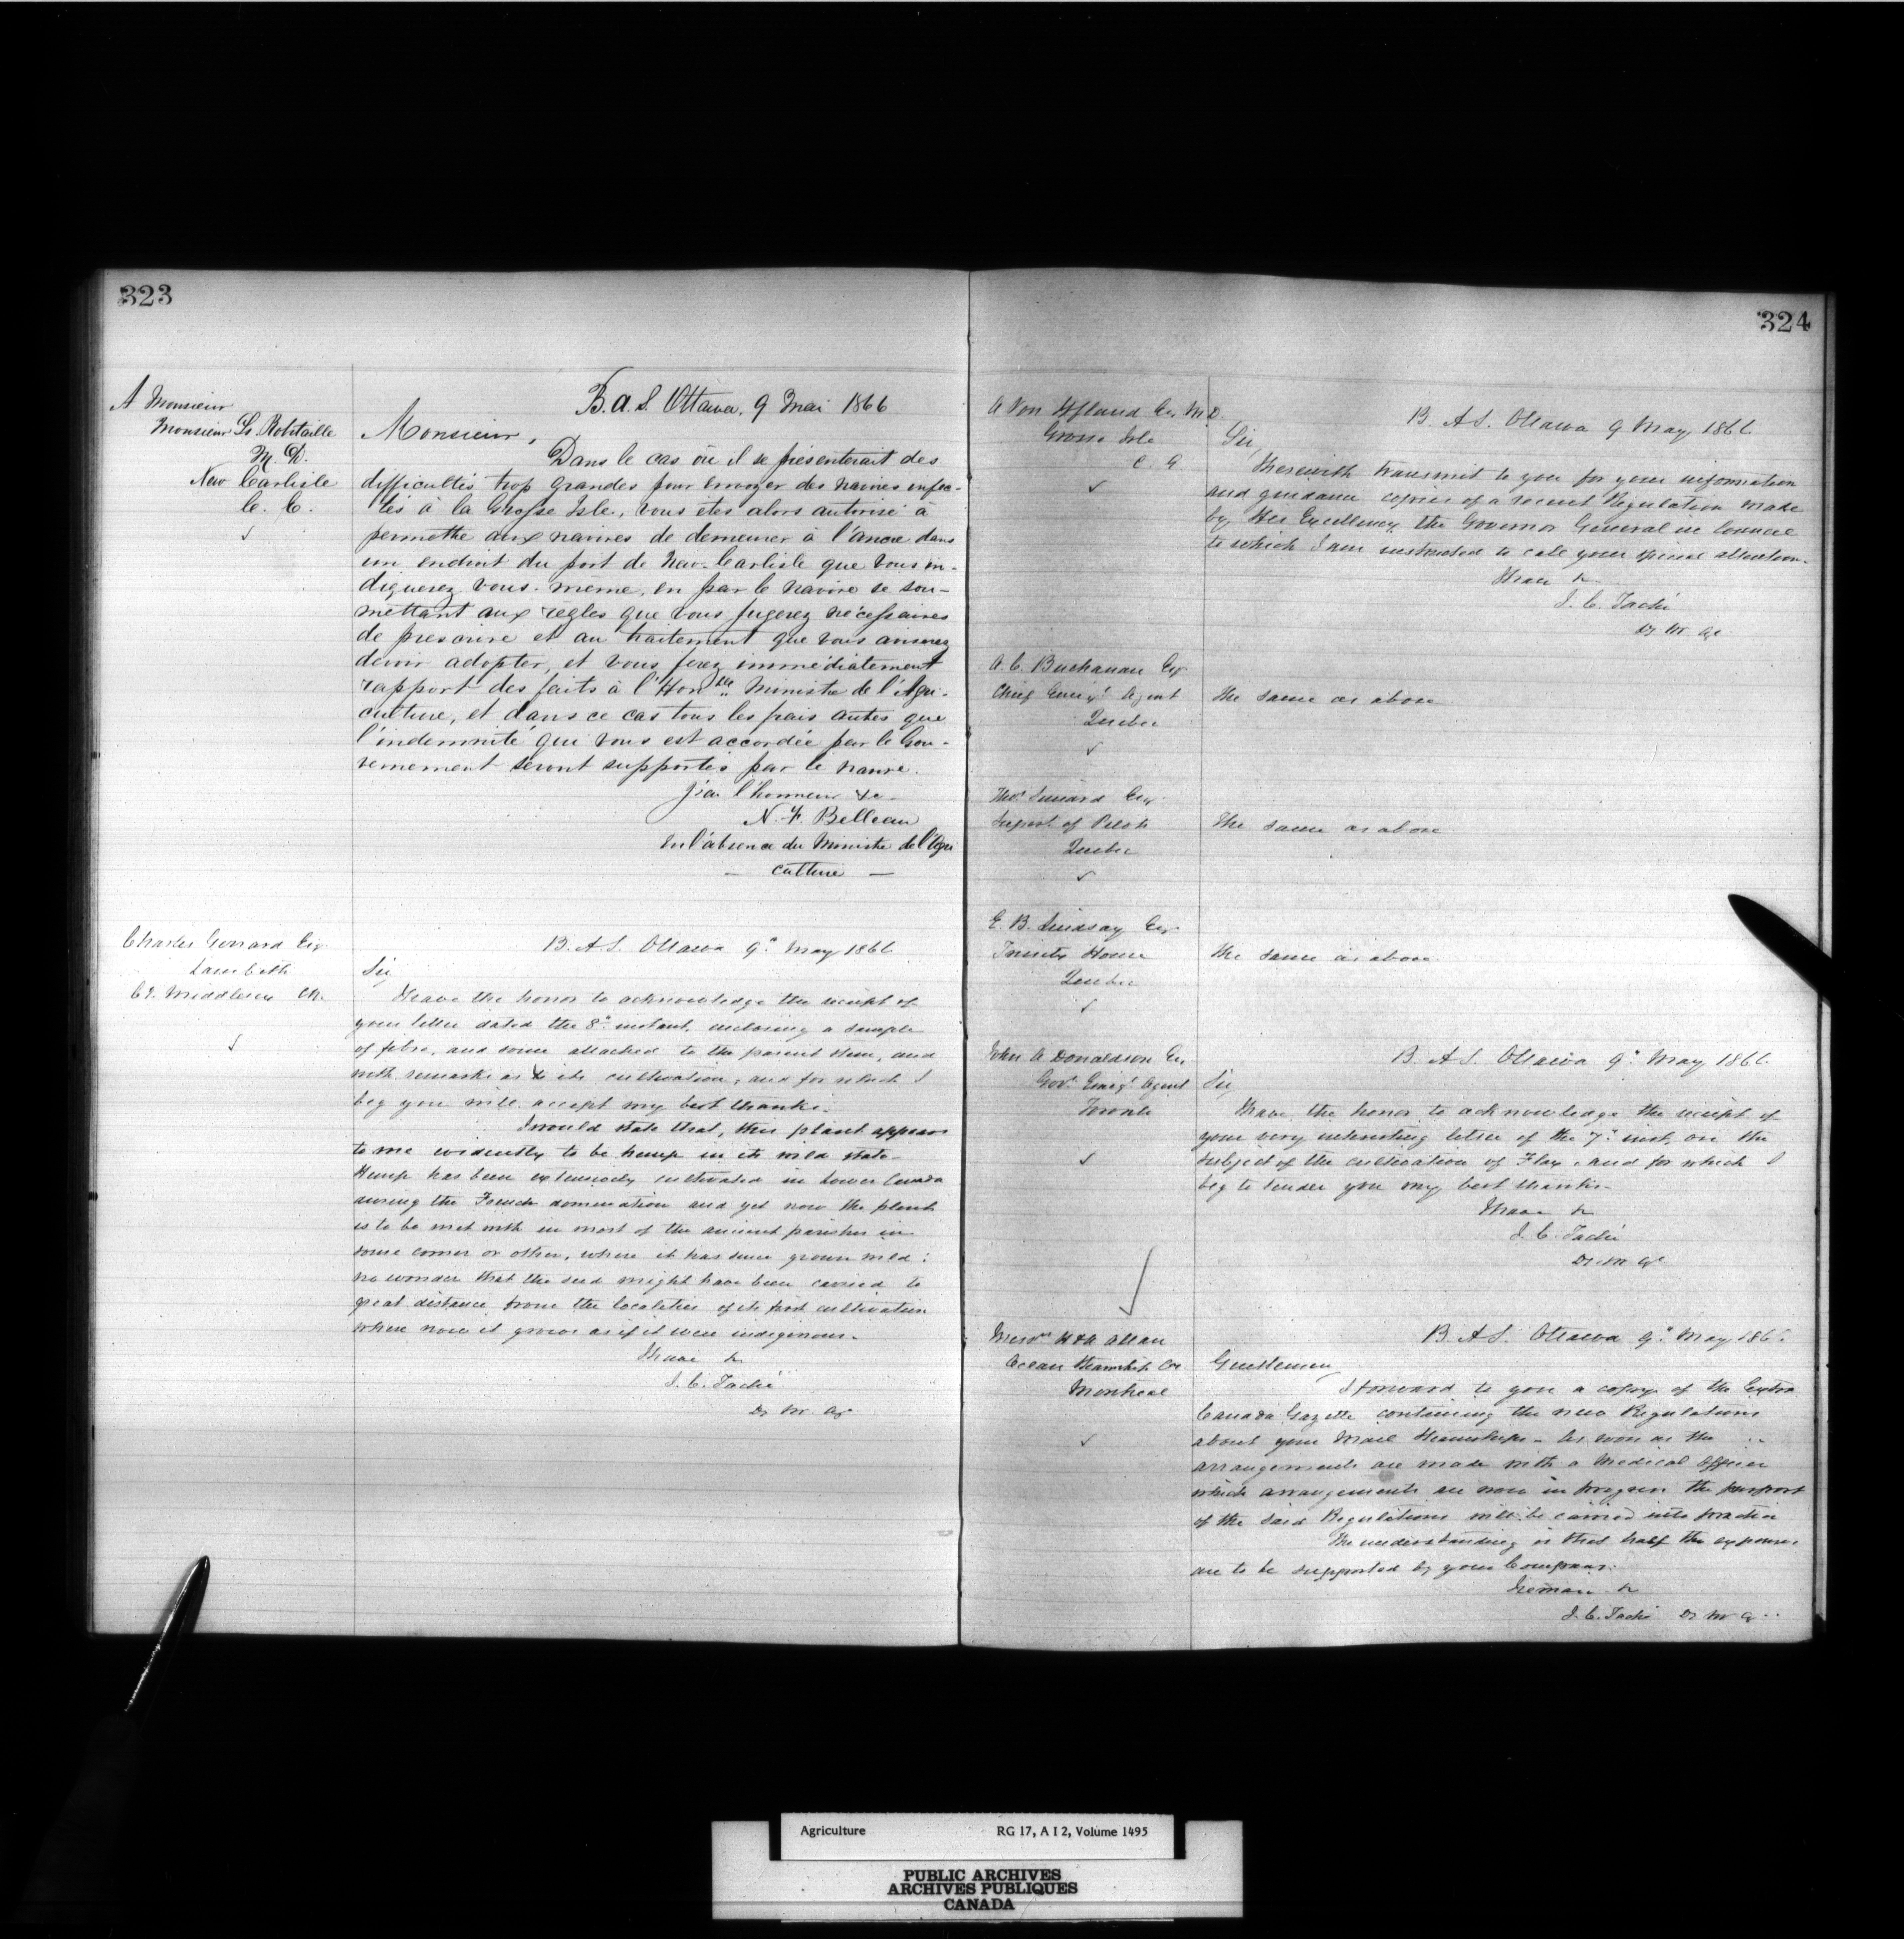 323
A Monsieur
Monsieur Ls. Robitaille
M. D.
New Carlisle
C. C.
B. A. S. Ottawa, 9 Mai 1866
Monsieur,
Dans le cas où il se présenterait des
difficultés trop grandes pour envoyer des navires infec-
tés à la Grosse Isle, vous êtes alors autorisé à
permettre aux navires de demeurer à l'ancre dans
un endroit du port de New-Carlisle que vous in-
diquerez vous-même, en par le navire se sou-
mettant aux règles que vous jugerez nécessaires
de prescrire et au traitement que vous aimerez
devoir adopter, et vous ferez immédiatement
rapport des faits à l'Honble Ministre de l'Agri-
culture, et dans ce cas tous les frais autres que
l'indemnité qui vous est accordée par le Gou-
vernement seront supportés par le navire.
J'ai l'honneur &c
N. F. Belleau
En l'absence du Ministre de l'Agri
— culture —
Charles Gerrard Esq
Lambeth
Co. Middlesex
B. A. S. Ottawa 9th May 1866
Sir,
I have the honor to acknowledge the receipt of
your letter dated the 8th instant, enclosing a sample
of fibre, and some attached to the parent stem, and
with remarks as to its cultivation, and for which I
beg you will accept my best thanks.
I would state that, this plant appears
to me evidently to be hemp in its wild state.
Hemp has been extensively cultivated in Lower Canada
during the French domination and yet now the plant
is to be met with in most of the ancient parishes in
some corner or other, where it has since grown wild:
no wonder that the seed might have been carried to
great distance from the localities of its first cultivation
where now it grows as if it were indigenous.
I have &c
J. C. Taché
Dy M. Ag
324
A Von Iffland Esq M.D.
Grosse Isle
C. E.
B. A S. Ottawa 9 May 1866
Sir,
I herewith transmit to you for your information
and guidance copies of a recent Regulation made
by His Excellency the Governor General in Council
to which I am instructed to call your special attention.
I have &c
J. C. Taché
Dy M. Ag
A. C. Buchanan Esq
Chief Emigt Agent
Quebec
The same as above
Thos
Supert of Pilots
Quebec
The same as above
E. B. Lindsay Esq
Trinity House
Quebec
The same as above.
John A Donaldson Esq
Govt Emigt Agent
Toronto
B. A S. Ottawa 9th May 1866
Sir,
I have the honor to acknowledge the receipt of
your very interesting letter of the 7th inst, on the
subject of the cultivation of Flax, and for which I
beg to tender you my best thanks.
I have &c
J. C. Taché
Dy M Ag
Messrs H & A Allan
Ocean Steamship Co
Montreal
B. A S. Ottawa 9th May 1866
Gentlemen,
I forward to you a copy of the Extra
Canada Gazette containing the new Regulations
about your Mail Steamships. As soon as the
arrangements are made with a Medical Officer
which arrangements are now in progress the purport
of the said Regulations will be carried into practice
The understanding is that half the expenses
are to be supported by your Company.
I remain &c
J. C. Taché Dy M Ag
Agriculture RG 17, A I 2, Volume 1495
PUBLIC ARCHIVES
ARCHIVES PUBLIQUES
CANADA